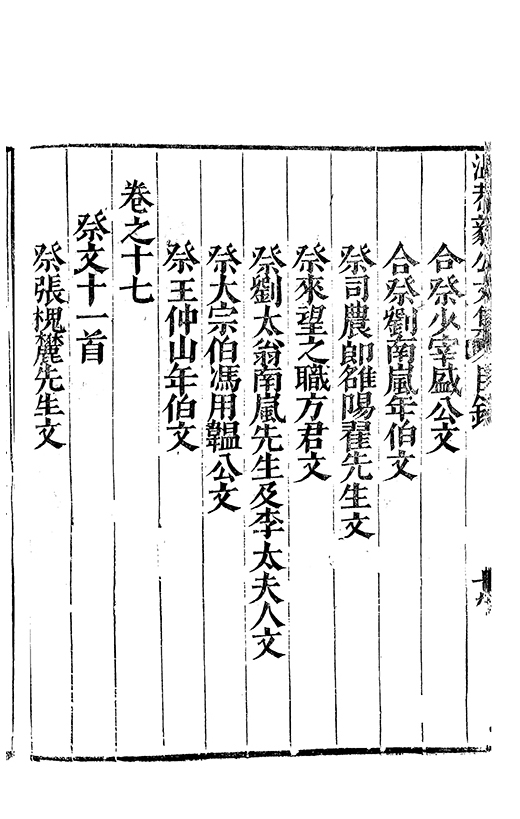 恭毅公文集 目錄
合祭少宰盛公文
合祭劉南嵐年伯文
祭司農郎雒陽翟先生文
祭來望之職方君文
祭劉太翁南嵐先生及李太夫人文
祭大宗伯馮用韞公文
祭王仲山年伯文
卷之十七
祭文十一首
祭張槐麓先生文